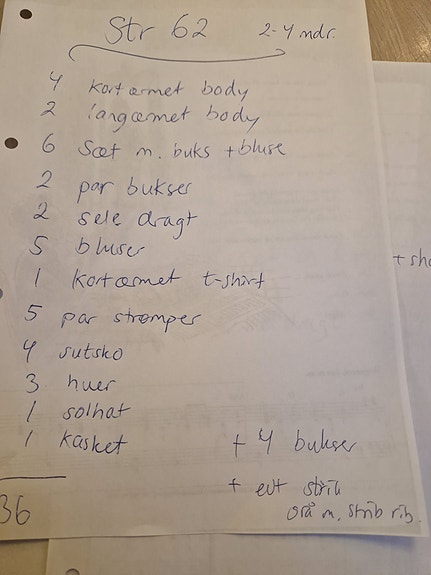 Str 62 2-4 mdr.
4 kortærmet body
2 langærmet body
6 Sæt m. buks + bluse
2 par bukser
2 sele dragt
5 bluser
1 kortærmet t-shirt
5 par strømper
4 sutsko
3 huer
1 solhat
1 kasket
36
+ 4 bukser
+ evt strik
grå m. strib rib.
+ sho